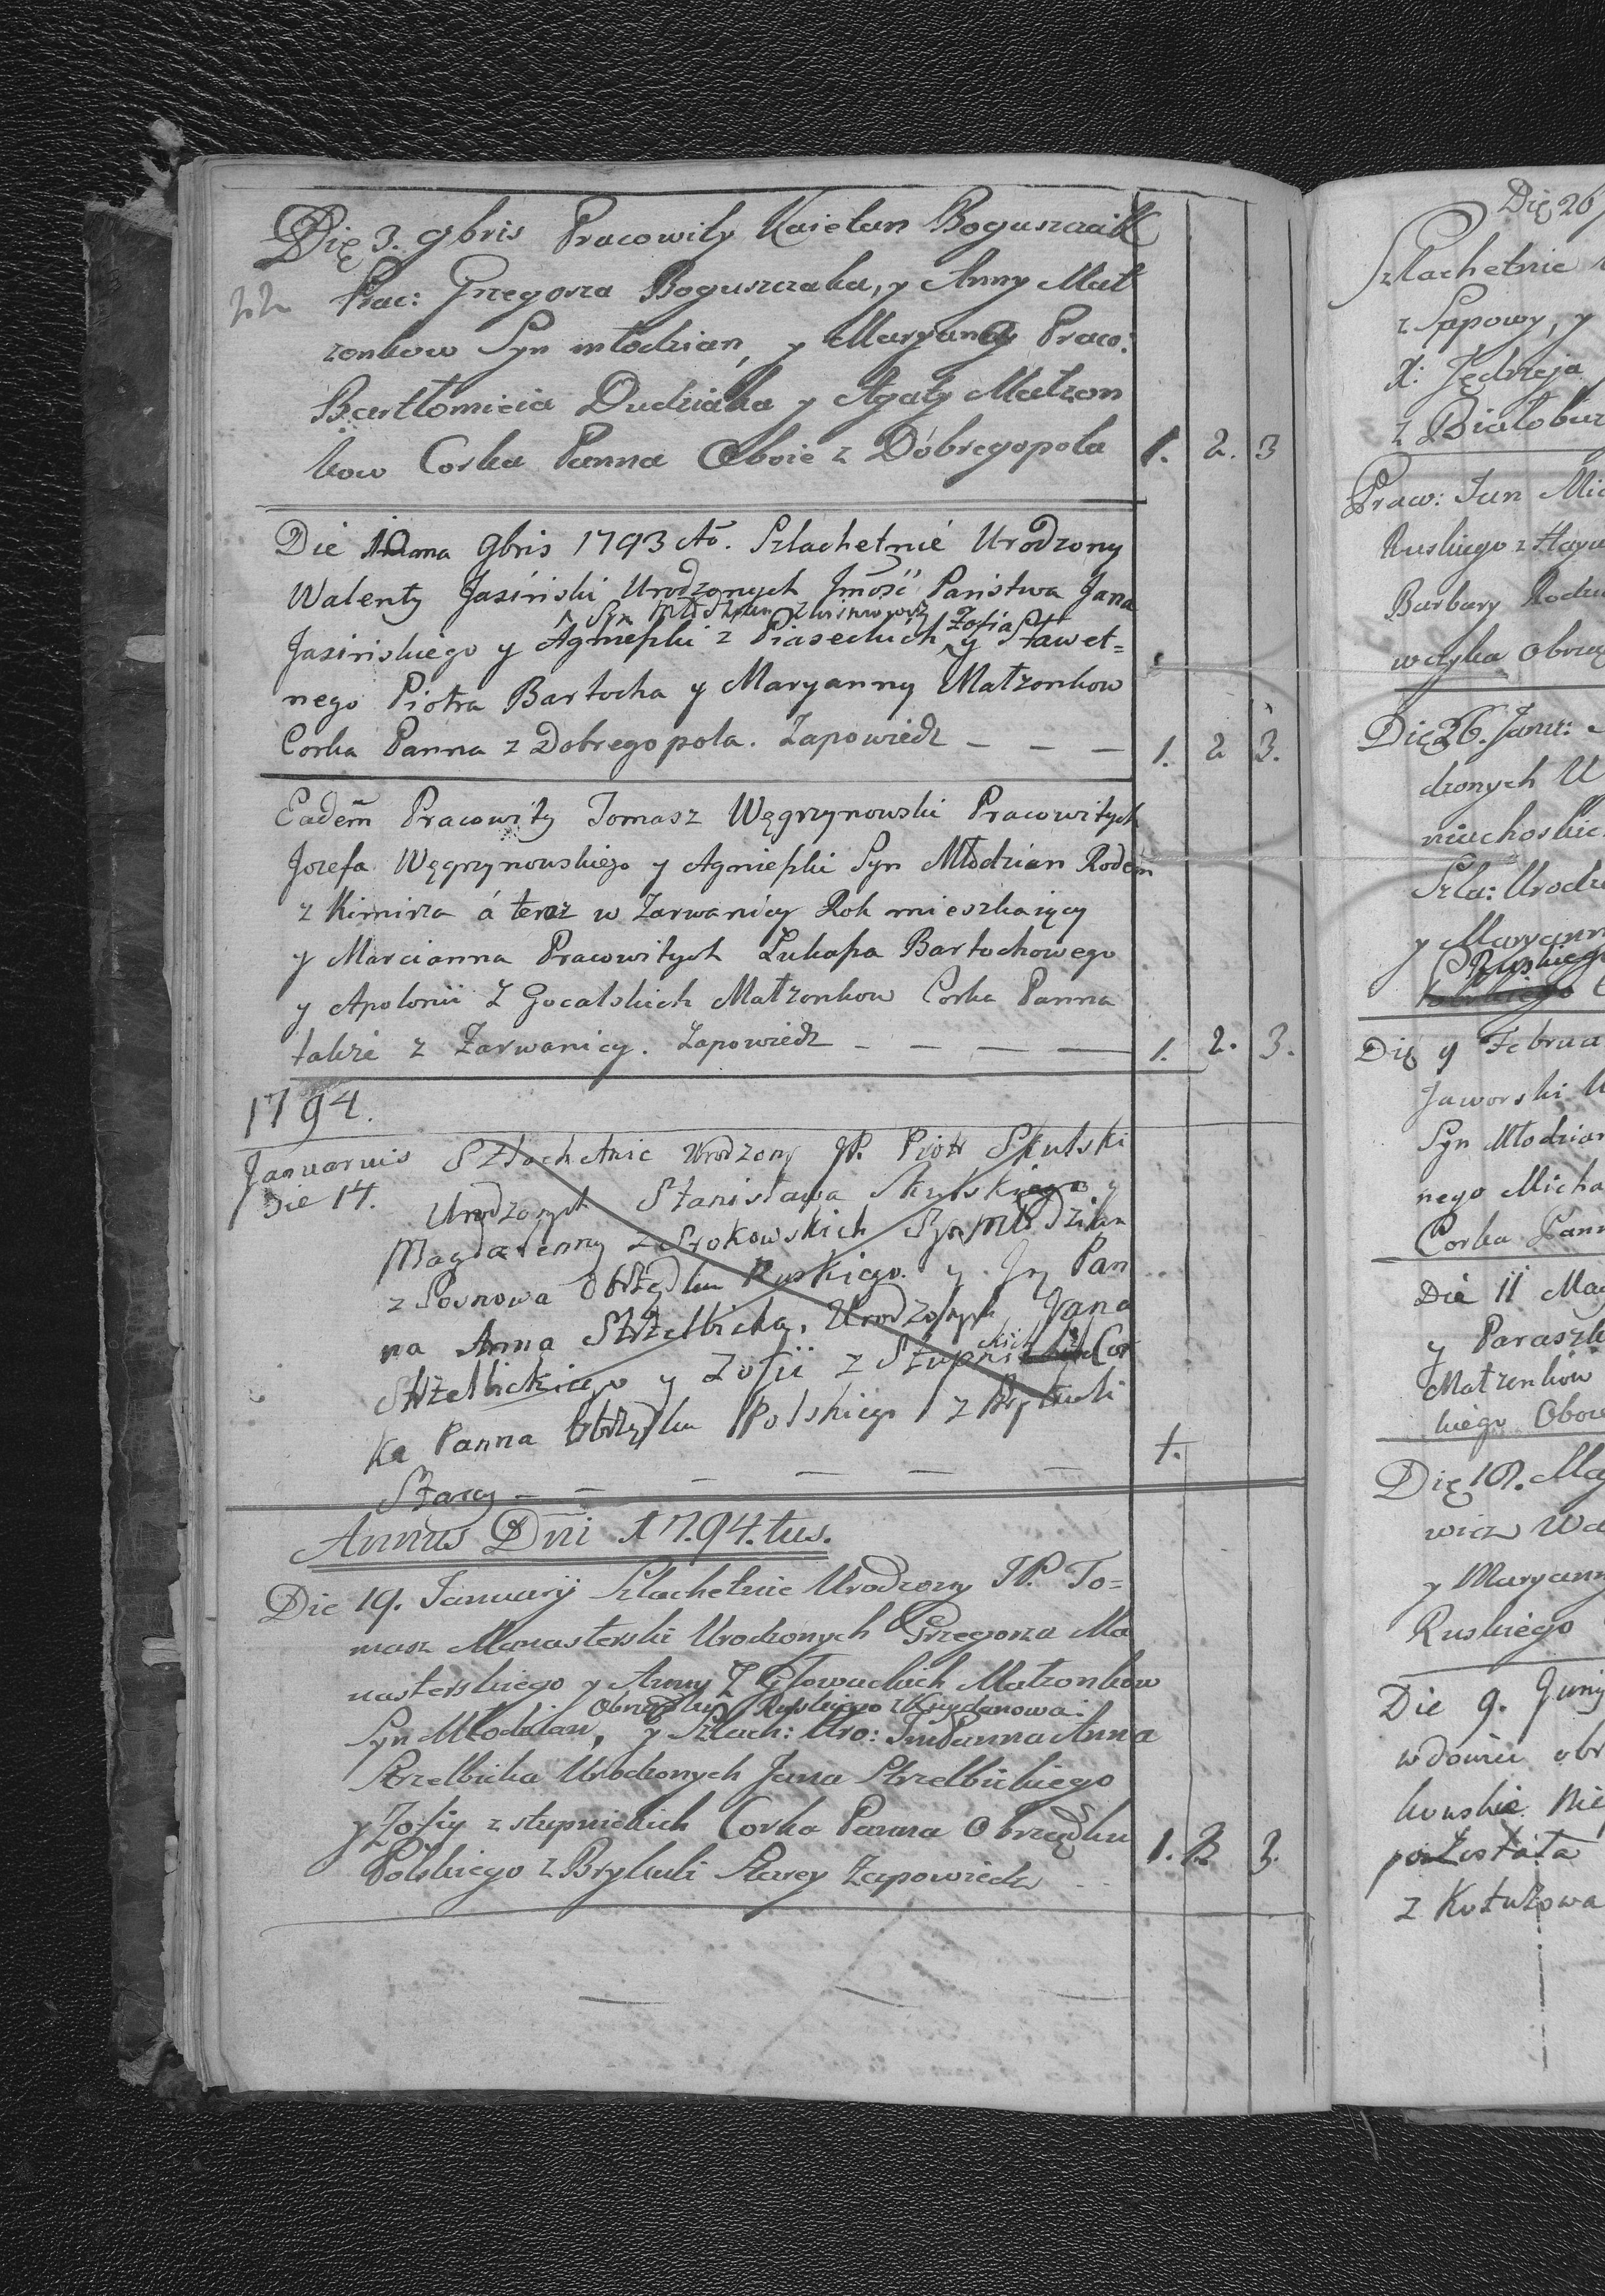 Dię 3. 9bris Pracowity Kaietan Boguszczaik
Prac: Grzegorza Boguszczaka, y Anny Mał
zonkow Syn młodzian, y Maryanna Praco:
Bartłomieia Dudziaka y Agaty Małzon
kow Corka Panna Oboie z Dobregopola 1. 2. 3
Die 10ma 9bris 1793 Ao. Szlachetnié Urodzony
Walenty Jasiński Urodzonych Jmość Państwa Jana
Syn Młodzian
Jasińskiego y Agnieszki z Piaseckich y Zofia Sławet=
nego Piotra Bartocha y Maryanny Małzonkow
Corka Panna z Dobregopola. Zapowiedz - - - 1. 2 3.
Eadem Pracowity Tomasz Węgrzynowski Pracowitych
Jozefa Węgrzynowskiego y Agnieszki Syn Młodzian Rodem
z Kimirza á teraz w Zarwanicy Rok mieszkaiący
y Marcianna Pracowitych Łukasza Bartochowego
y Apolonii Z Gocalskich Małzonkow Corka Panna
także z Zarwanicy. Zapowiedz - - - - 1. 2. 3.
1794.
Januarius Szlachetnie Urodzony JP. Piotr Skulski
Die 14. Urodzonych Stanisława Skulskiego y
Magdalenny z Srokowskich Syn Młodzian
z Sosnowa Obrządku Ruskiego. y Jey Pan
na Anna Strzelbicka, Urodzonych Jana
Strzelbickiego y Zofii z Stupnickich Cor
ka Panna Obrządku Polskiego z Brykuli
Starey - - - - - - 1.
Annus Dni 1794.tus.
Die 19. Januarij Szlachetnie Urodzony JP. To=
masz Manasterski Urodzonych Grzegorza Ma
nasterskiego y Anny Z Głowackich Małzonkow
Obrządku Ruskiego
Syn Młodzian, y Szlach: Uro: JmPanna Anna
Strzelbicka Urodzonych Jana Strzelbickiego
y Zofiy z stupnickich Corka Panna Obrządku
Polskiego z Brykuli Starey Zapowiedz 1. 2. 3.
Dię 26
Szlachetnie
z Sapowy, y
X: Jędrzeja
z Białobo
Praw: Jan Mi
Ruskiego z
Barbary
Obrzą
Dię 26. Janu:
dzonych U
Szla: Urodz
y Maryann
Ruskiego
Dię 9 Februa
Jaworski U
Syn Młodzian
nego Micha
Corka Pann
Die 11 Ma
y Paraszk
Małzonkow
kiego Obo
Dię 18. Ma
wicz Wa
y Maryann
Ruskiego
Die 9. Juny
wdowiec obr
pozostała
z Kotuzowa